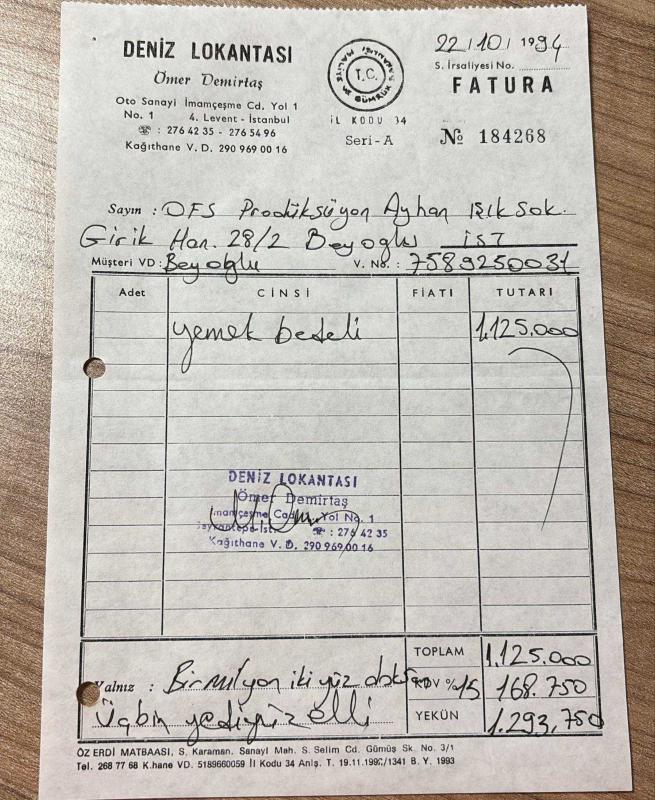 DENİZ LOKANTASI
Ömer Demirtaş
Oto Sanayi İmamçeşme Cd. Yol 1
No. 1 4. Levent - İstanbul
☎ : 276 42 35 - 276 54 96
Kağıthane V. D. 290 969 00 16
T.C.
MALİYE VE GÜMRÜK BAKANLIĞI
İL KODU 34
Seri - A
22/10/1994
S. İrsaliyesi No. ............
FATURA
№ 184268
Sayın : DFS Prodüksüyon Ayhan Işık Sok.
Girik Han. 28/2 Beyoğlu İST
Müşteri VD: Beyoğlu V. No. : 7589250031
Adet CİNSİ FİATI TUTARI
yemek bedeli 1.125.000
DENİZ LOKANTASI
Ömer Demirtaş
İmamçeşme Cad. Yol No. 1
Seyrantepe-İst. ☎ : 276 42 35
Kağıthane V. D. 290 969 00 16
TOPLAM 1.125.000
Yalnız : Birmilyon iki yüz doksan KDV %15 168.750
Üçbin yediyüz elli YEKÜN 1.293,750
ÖZ ERDİ MATBAASI, S. Karaman. Sanayi Mah. S. Selim Cd. Gümüş Sk. No. 3/1
Tel. 268 77 68 K.hane VD. 5189660059 İl Kodu 34 Anlş. T. 19.11.1992/1341 B. Y. 1993